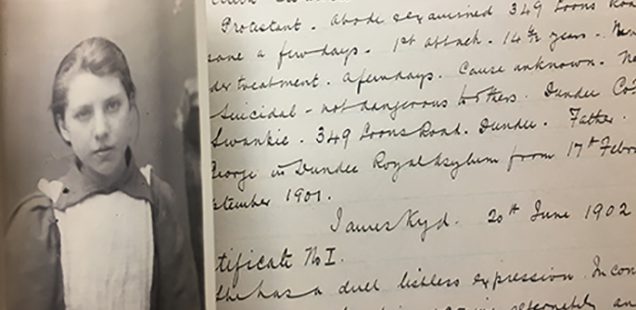 Protestant. Abode if examined 349 Loons Road
some a few days. 1st attack. 14½ years. New
der treatment. A few days. Cause unknown. No
Suicidal - not dangerous to others. Dundee Co
Swankie. 349 Loons Road. Dundee. Father.
George in Dundee Royal Asylum from 17th Febru
ptember 1901.
James Kyd. 20th June 1902
tificate No I.
She has a dull listless expression. Incon
alternately an